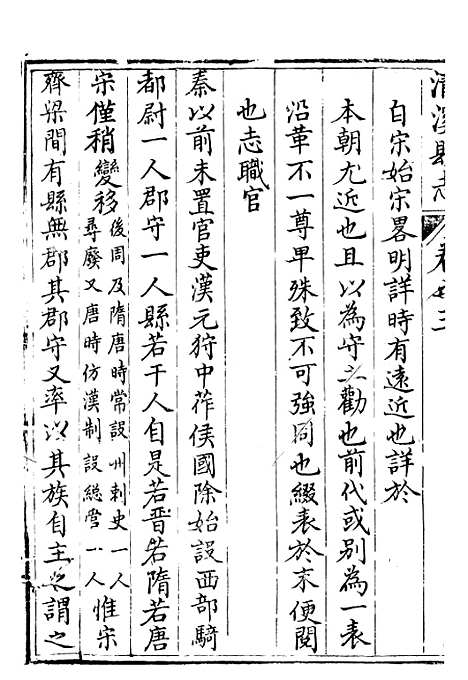 清溪縣志 卷之三
自宋始宋畧明詳時有遠近也詳於
本朝尤近也且以為守之勸也前代或别為一表
沿革不一尊卑殊致不可強同也綴表於末便閱
也志職官
秦以前未置官吏漢元狩中莋侯國除始設西部騎
都尉一人郡守一人縣若干人自是若晉若隋若唐
宋僅稍變移後周及隋唐時常設州刺史一人尋廢又唐時仿漢制設總營一人惟宋
齊梁間有縣無郡其郡守又率以其族自主之謂之